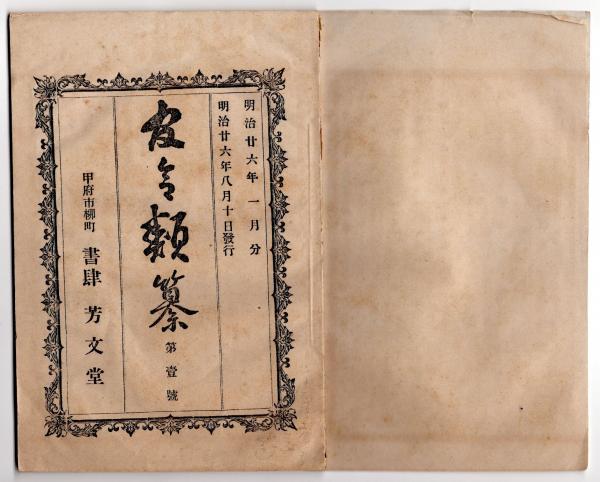 明治廿六年一月分
明治廿六年八月十日發行
官令類纂
第壹號
甲府市柳町 書肆 芳文堂